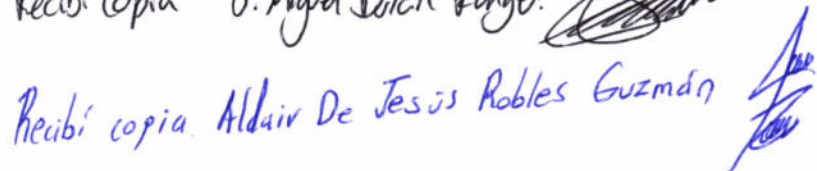 Recibí copia J. Miguel
Recibí copia. Aldair De Jesús Robles Guzmán